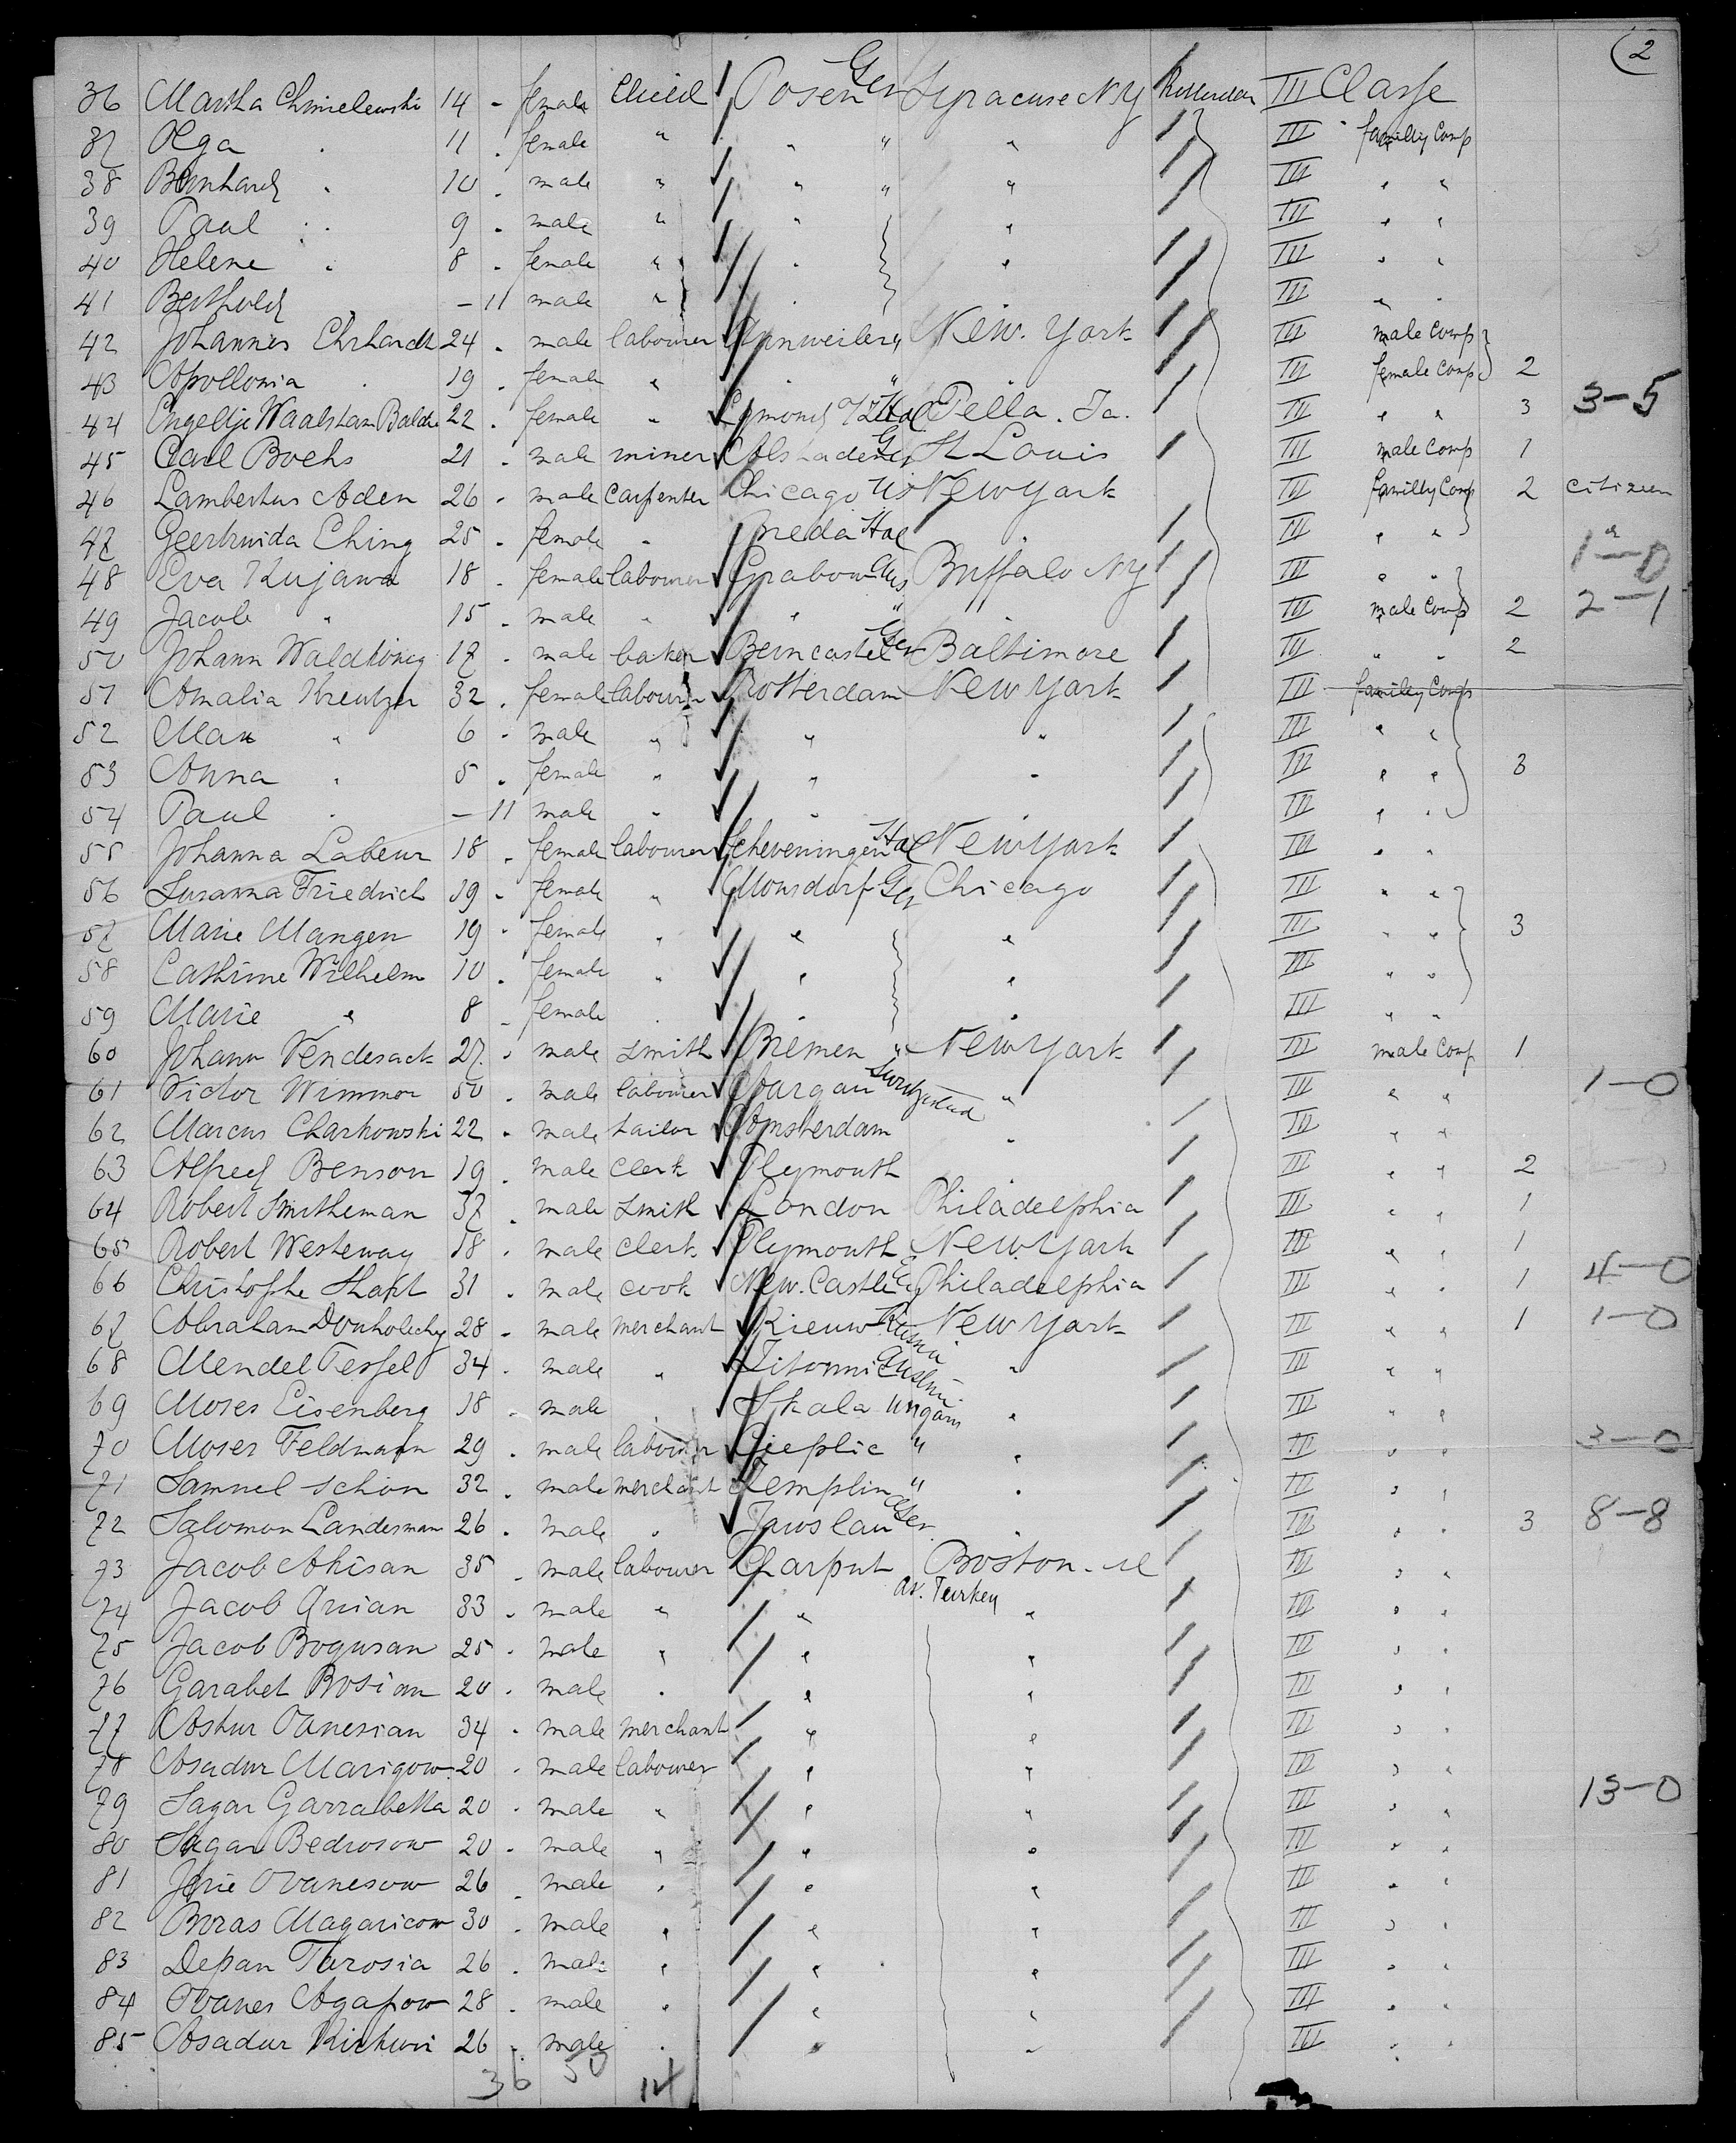 2
36 Martha Chmielewski 14 - female Child Posen Ger Syracuse NY Rotterdam III Classe
37 Olga " 11 - female " " " " III familly Comp
38 Bernhard " 10 - male " " " " III " "
39 Paul " 9 - male " " " III " "
40 Helene " 8 - female " " " III " "
41 Berthold " - 11 male " " " III " "
42 Johannes Ehrhardt 24 - male labourer Annweiler " New. York III male Comp
43 Apollonia " 19 - female " " " " III female Comp 2
44 Engeltje Waalsham 22 - female " Egmond Hol Pella. Ia. III " " 3 3-5
45 Carl Bochs 21 - male miner Ger St Louis III male Comp 1
46 Lambertus Aden 26 - male Carpenter Chicago US New York III familly Comp 2 citizen
47 Geertruida Eling 25 - female " Breda Hol " III " "
48 Eva Kujawa 18 - female labourer Grabow Buffalo NY III " " 1-0
49 Jacob " 15 - male " " " " III male Comp 2 2-1
50 Johann Waldkönig 17 - male baker Berncastel Ger Baltimore III " " 2
51 Amalia Kreutzer 32 - female labourer Rotterdam New York III familly Comp
52 Max " 6 - male " " " III " "
53 Anna " 5 - female " " " III " " 3
54 Paul " - 11 male " " " III " "
55 Johanna Labeur 18 - female labourer Scheveningen Hol New York III " "
56 Susanna Friedrich 19 - female " Monsdorf Ger Chicago III " "
57 Marie Mangen 19 - female " " " III " " 3
58 Cathrine Wilhelm 10 - female " " " III " "
59 Marie " 8 - female " " " III " "
60 Johann Vendesack 27 - male smith Bremen " New York III male Comp 1
61 Victor Wimmer 50 - male labourer Aargau " III " " 1-0
62 Marcus Charkowski 22 - male tailor Amsterdam " III " "
63 Alfred Benson 19 - male clerk Pleymouth " III " " 2
64 Robert Smitheman 37 - male smith London Philadelphia III " " 1
65 Robert Westeway 18 - male clerk Pleymouth New York III " " 1
66 Christophe 31 - male cook New. Castle Philadelphia III " " 1 4-0
67 Abraham 28 - male merchant Kieuw Russia New York III " " 1 1-0
68 Mendel Tessel 34 - male " " III " "
69 Moses Eisenberg 18 - male " Skala Ungarn " III " "
70 Moses Feldmann 29 - male labourer " " III " " 3-0
71 Samuel Schön 32 - male merchant Templin " " III " "
72 Salomon Landesman 26 - male " Jaroslau " III " " 3 8-8
73 Jacob Akisan 35 - male labourer Charput as. Turkey Boston. M III " "
74 Jacob Quian 33 - male " " " III " "
75 Jacob Bogusan 25 - male " " " III " "
76 Garabet Bosian 20 - male " " " III " "
77 Astur Ovanesian 34 - male merchant " " III " "
78 Asadur Marigow 20 - male labourer " " III " "
79 Sagar Garrabetta 20 - male " " " III " " 13-0
80 Sagar Bedrosow 20 - male " " " III " "
81 Ovanesow 26 - male " " " III " "
82 Boras Magaricow 30 - male " " " III " "
83 Depan Tarosia 26 - male " " " III " "
84 Ovanes Agapow 28 - male " " " III " "
85 Asadur 26 - male " " " III " "
36 50 14